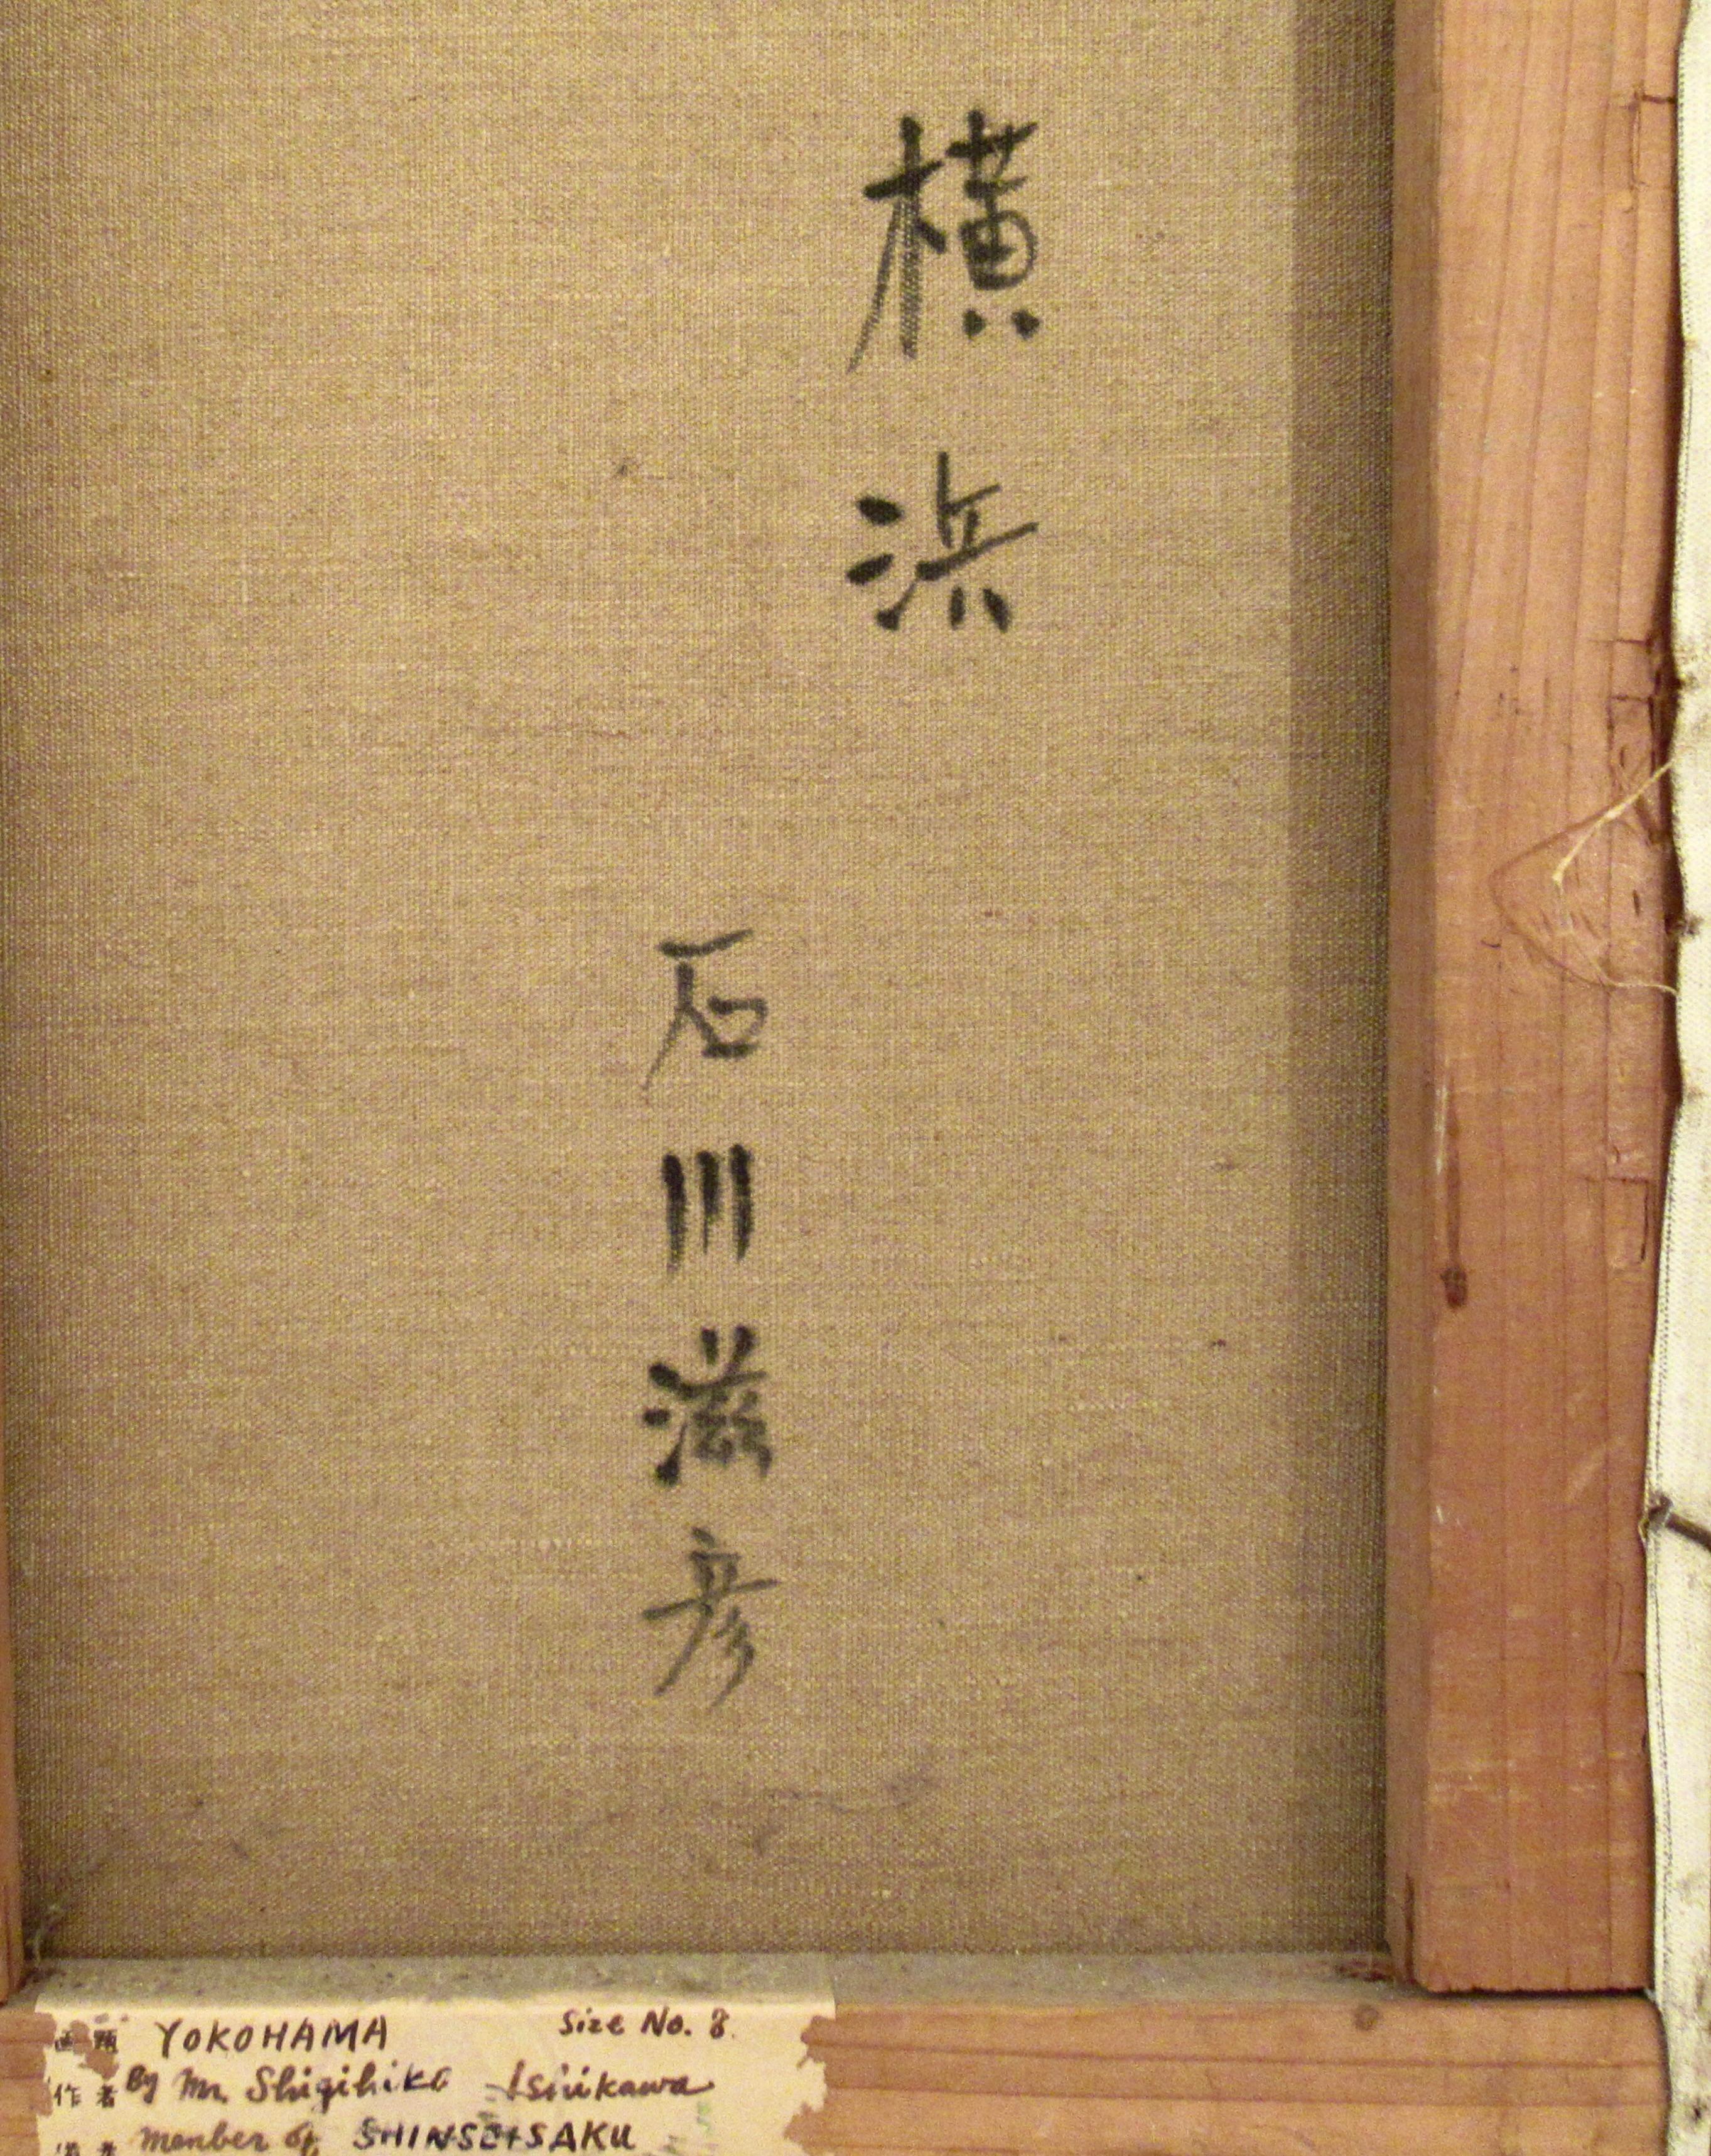 横浜
石川滋彦
画題 YOKOHAMA Size No. 8.
作者 By Mr. Shigihiko Ishikawa
member of SHINSEISAKU